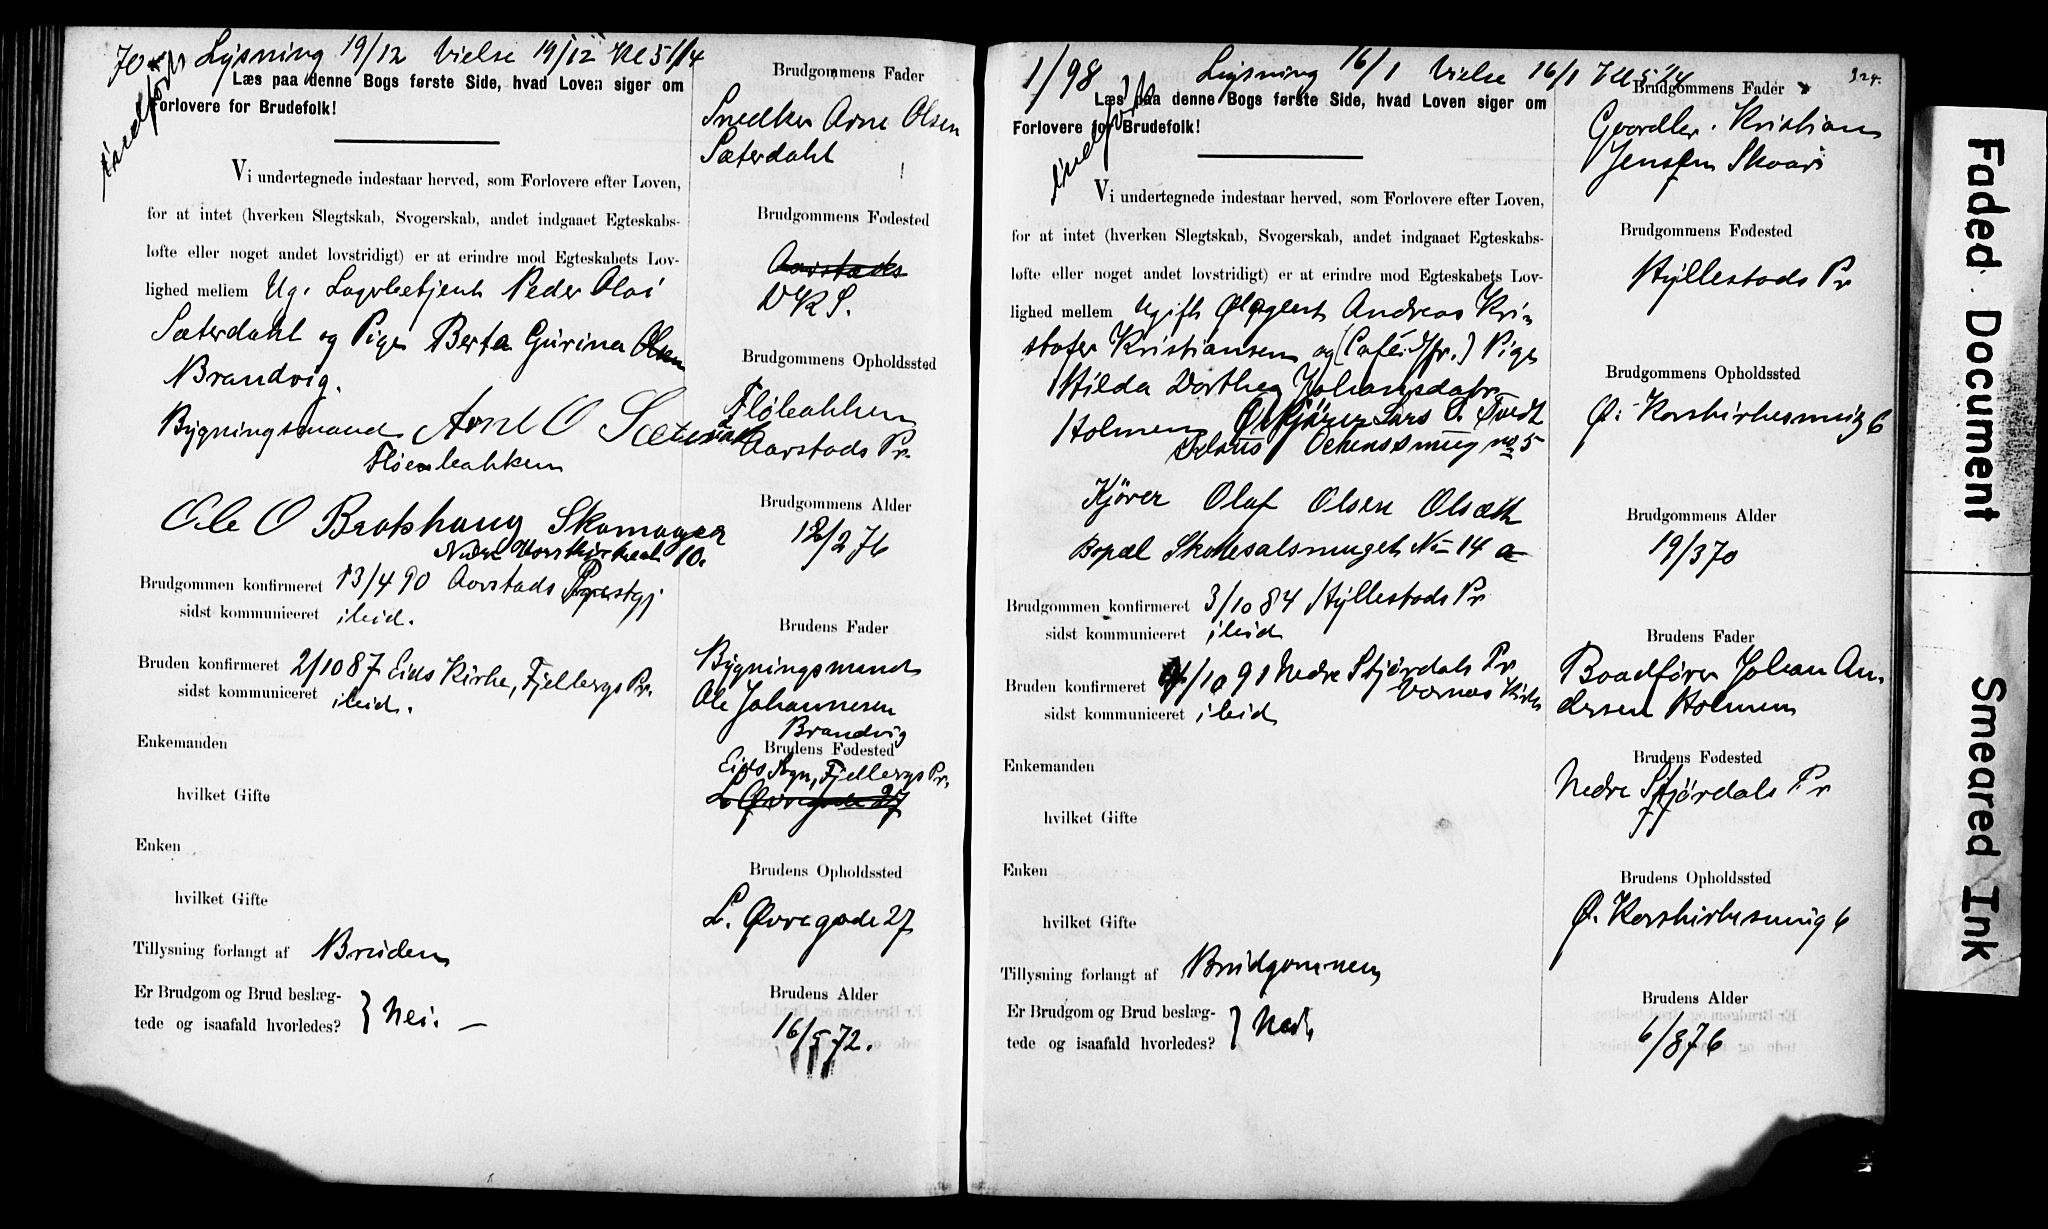 70 Lysning 19/12 Vielse 19/12 Kl 5 1/4
indført
Læs paa denne Bogs første Side, hvad Loven siger om
Forlovere for Brudefolk!
Vi undertegnede indestaar herved, som Forlovere efter Loven,
for at intet (hverken Slegtskab, Svogerskab, andet indgaaet Egteskabs-
løfte eller noget andet lovstridigt) er at erindre mod Egteskabets Lov-
lighed mellem Ug. Lagerbetjent Peder Olai
Sæterdahl og Pige Berta Gurina Olsen
Brandvig.
Bygningsmand Arne O Sæterdahl
Fløenbakken
Ole O Brotshaug Skomager
Nedre Korskirkealm 10.
Brudgommen konfirmeret 13/4 90 Aarstads Prestgj
sidst kommuniceret ibid.
Bruden konfirmeret 2/10 87 Eids Kirke, Fjelbergs Pr.
sidst kommuniceret ibid.
Enkemanden
hvilket Gifte
Enken
hvilket Gifte
Tillysning forlangt af Bruden
Er Brudgom og Brud beslæg-
tede og isaafald hvorledes? } Nei. —
Brudgommens Fader
Snedker Arne Olsen
Sæterdahl
Brudgommens Fødested
Aarstads
DKS.
Brudgommens Opholdssted
Fløbakken
Aarstads Pr.
Brudgommens Alder
12/2 76
Brudens Fader
Bygningsmand
Ole Johannesen
Brandvig
Brudens Fødested
Eids Sogn, Fjelbergs Pr.
L. Øvregade 27
Brudens Opholdssted
L. Øvregade 27
Brudens Alder
16/5 72.
1/98 Lysning 16/1 Vielse 16/1 Kl 5 1/4
324.
indført
Læs paa denne Bogs første Side, hvad Loven siger om
Forlovere for Brudefolk!
Vi undertegnede indestaar herved, som Forlovere efter Loven,
for at intet (hverken Slegtskab, Svogerskab, andet indgaaet Egteskabs-
løfte eller noget andet lovstridigt) er at erindre mod Egteskabets Lov-
lighed mellem Ugift Ølagent Andreas Kri-
stofer Kristiansen og (Caféjfr.) Pige
Hilda Dorthea Johansdatr
Holmen Ølkjører Lars O. Tvedt
No 5
Kjører Olaf Olsen Olsæth
Bopæl Skotesalsmuget No 14 a
Brudgommen konfirmeret 3/10 84 Hyllestads Pr
sidst kommuniceret ibid
Bruden konfirmeret 4/10 91 Nedre Stjørdals Pr
Værnes Kirke
sidst kommuniceret ibid
Enkemanden
hvilket Gifte
Enken
hvilket Gifte
Tillysning forlangt af Brudgommen
Er Brudgom og Brud beslæg-
tede og isaafald hvorledes? } Nei
Brudgommens Fader
Gaardbr. Kristian
Jensen Skaar
Brudgommens Fødested
Hyllestads Pr
Brudgommens Opholdssted
Ø. Korskirkesmug 6
Brudgommens Alder
19/3 70
Brudens Fader
Baadfører Johan An-
dersen Holmen
Brudens Fødested
Nedre Stjørdals Pr
Brudens Opholdssted
Ø. Korskirkesmug 6
Brudens Alder
6/8 76
Faded Document
Smeared Ink